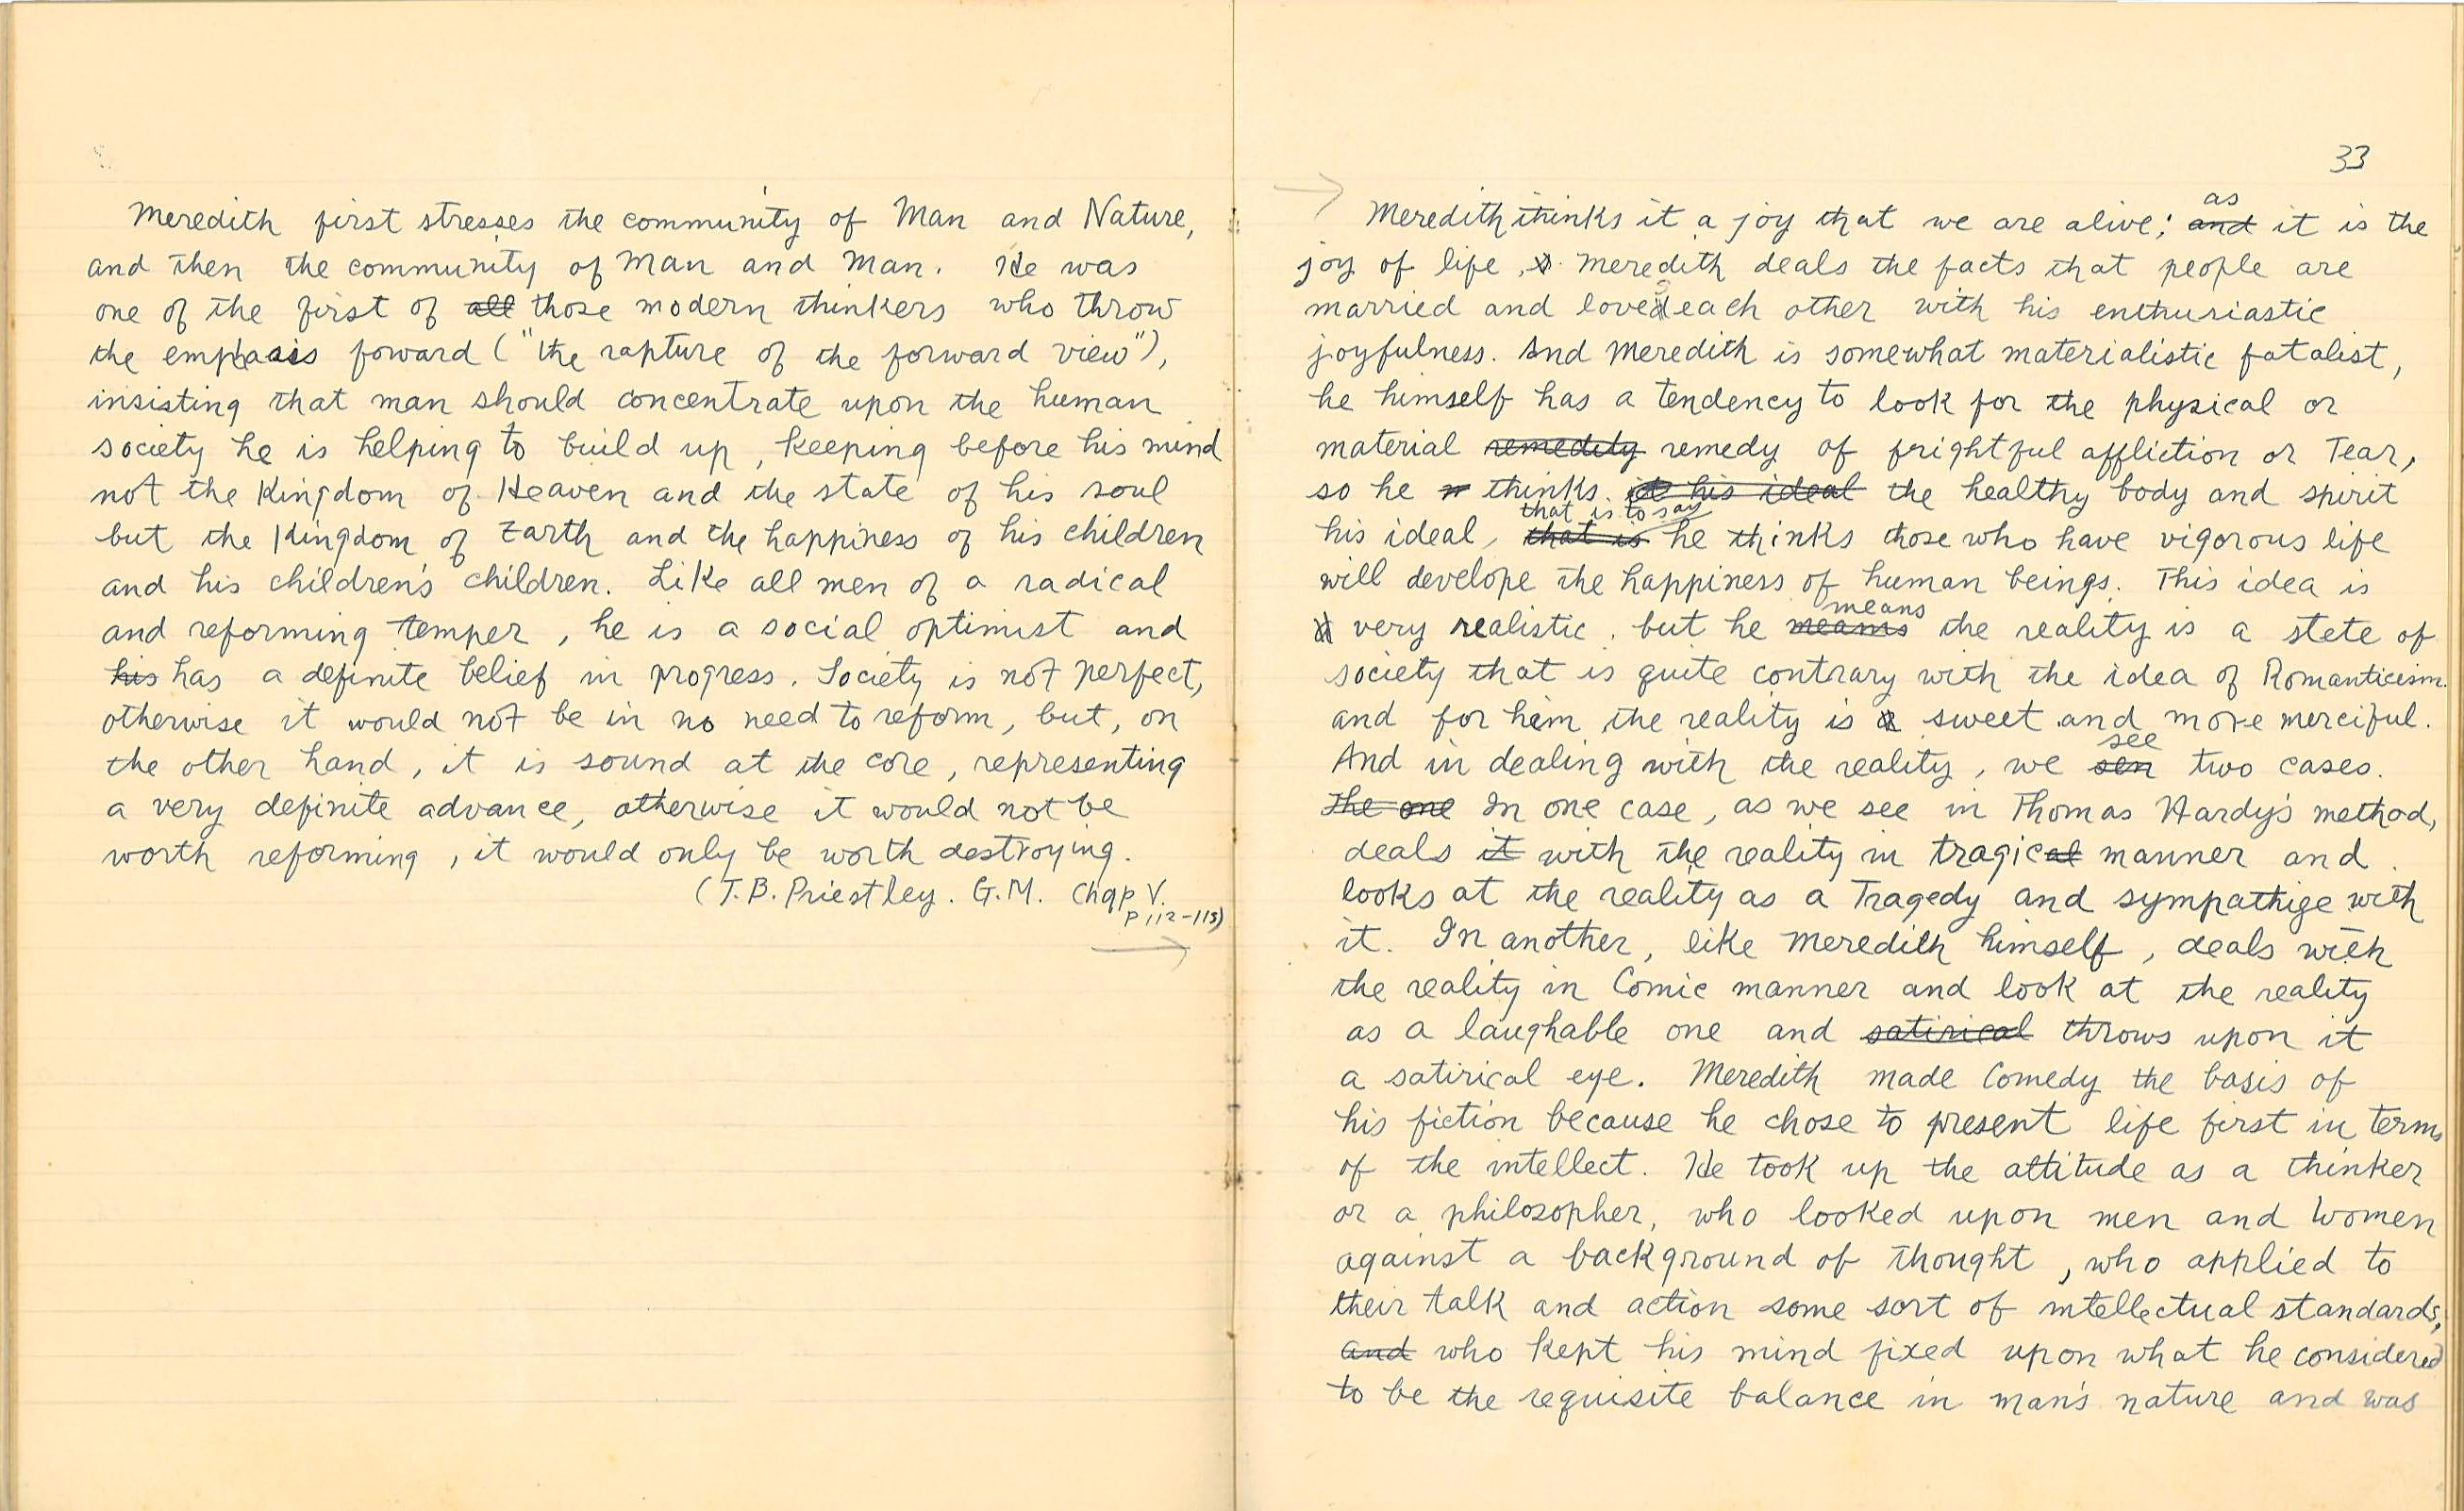 Meredith first stresses the community of Man and Nature,
and then the community of Man and Man. He was
one of the first of all those modern thinkers who throw
the emphasis foward ("the rapture of the forward view"),
insisting that man should concentrate upon the human
society he is helping to build up, keeping before his mind
not the Kingdom of Heaven and the state of his soul
but the Kingdom of Earth and the happiness of his children
and his children's children. Like all men of a radical
and reforming temper, he is a social optimist and
his has a definite belief in progress. Society is not perfect,
otherwise it would not be in no need to reform, but, on
the other hand, it is sound at the core, representing
a very definite advance, otherwise it would not be
worth reforming, it would only be worth destroying.
(J.B. Priestley. G.M. Chap V.
P 112-113)
33
as
Meredith thinks it a joy that we are alive; and it is the
joy of life, Meredith deals the facts that people are
married and loved each other with his enthusiastic
joyfulness. And Meredith is somewhat materialistic fatalist,
he himself has a tendency to look for the physical or
material remedily remedy of frightful affliction or Tear,
so he thinks. his ideal the healthy body and spirit
that is to say
his ideal, that is he thinks those who have vigorous life
will develope the happiness of human beings. This idea is
means
very realistic. but he means the reality is a stete of
society that is quite contrary with the idea of Romanticism.
and for him the reality is a sweet and more merciful.
see
And in dealing with the reality, we sen two cases.
The one In one case, as we see in Thomas Hardy's method,
deals it with the reality in tragical manner and
looks at the reality as a Tragedy and sympathige with
it. In another, like Meredith himself, deals with
the reality in Comic manner and look at the reality
as a laughable one and satirical throws upon it
a satirical eye. Meredith made Comedy the basis of
his fiction because he chose to present life first in terms
of the intellect. He took up the attitude as a thinker
or a philosopher, who looked upon men and women
against a background of thought, who applied to
their talk and action some sort of intellectual standards,
and who kept his mind fixed upon what he considered
to be the requisite balance in man's nature and was